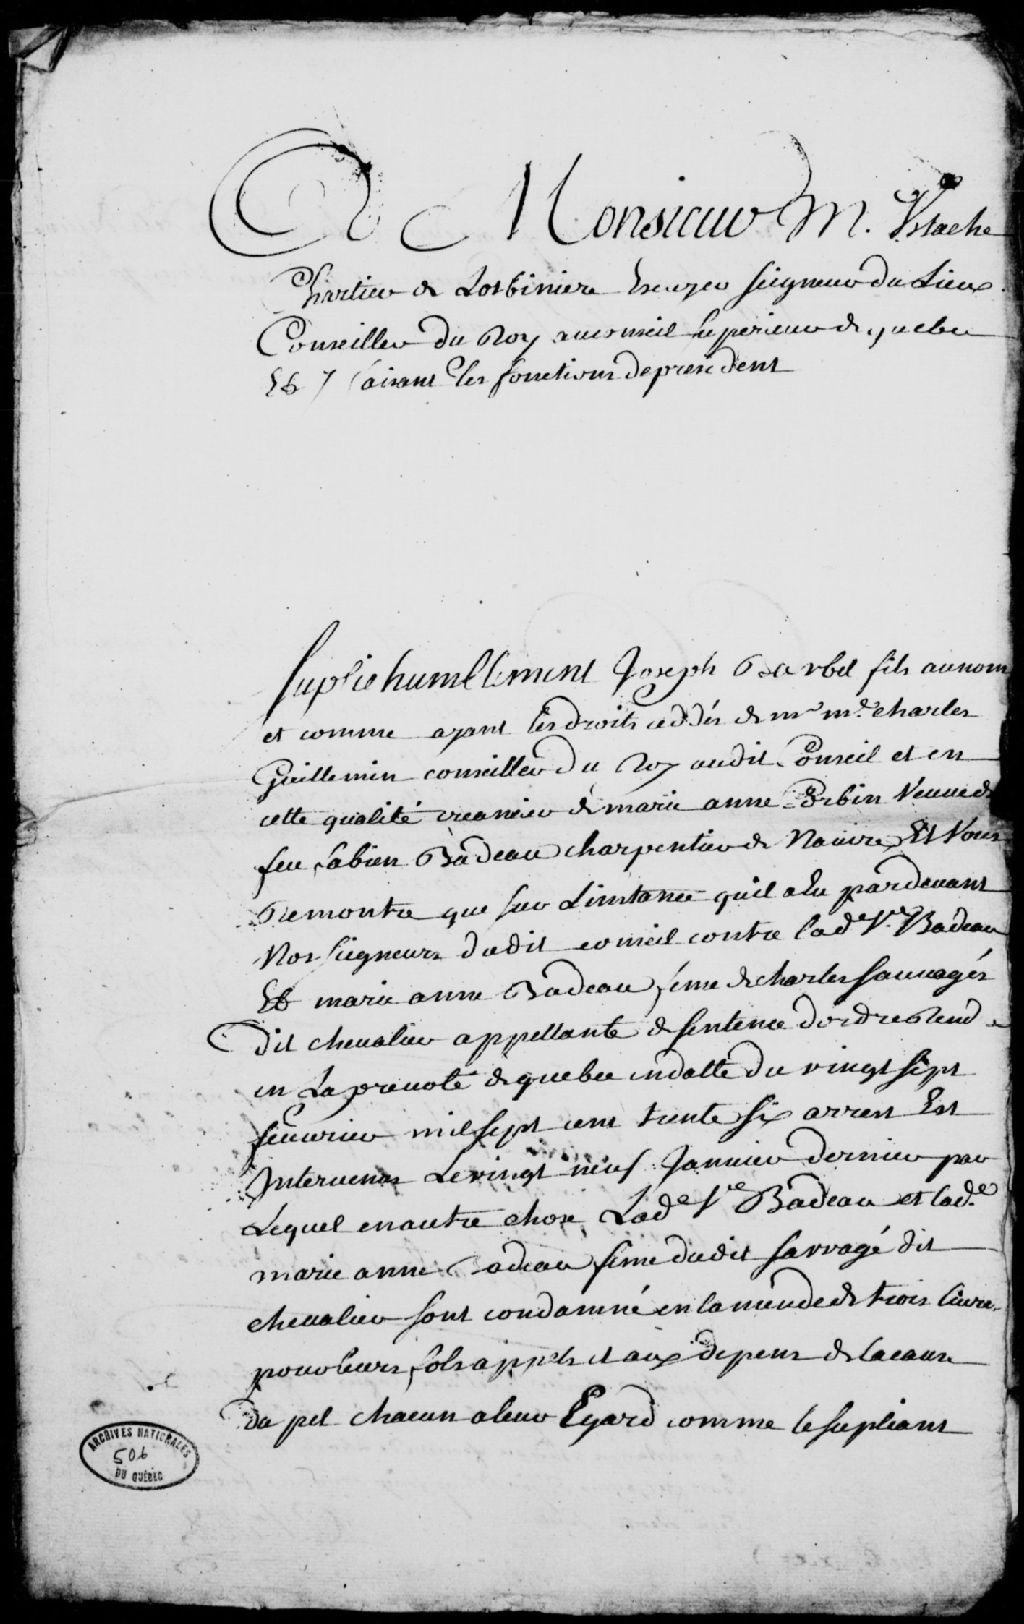 A Monsieur M. Ustache
Chartier de Lotbiniere Escuyer seigneur du Lieux
Conseiller du Roy au conseil superieur de quebec
Et y faisant les fonctions de president
Suplie humblement Joseph Barbel fils au nom
et comme ayant les droits ceddés de mr me. charles
Guillemin conseiller du Roy audit Conseil et en
cette qualité creancier de marie anne Corbin Veuve de
feu fabien Badeau charpentier de Navire Et Vous
Remontre que sur Linstance quil a Eu pardevant
Nosseigneurs dudit conseil contre lade. Ve. Badeau
Et marie anne Badeau feme de charles sauvagés
Dit chevalier appellante de sentence dordre Rend
en La prevoté de quebec en datte du vingt sept
fevrier mil sept cent trente six arrest Est
Intervenus Le vingt neuf Janvier dernier par
Lequel en autre chose Lade Ve Badeau et lade.
marie anne Badeau feme dudit sarvagé dit
chevalier sont condamné en lamende de trois livre
pour leurs fols appels et aux depens de la cause
Da pel chacun a leur Egard comme le supliant
ARCHIVES NATIONALES
506
DU QUÉBEC